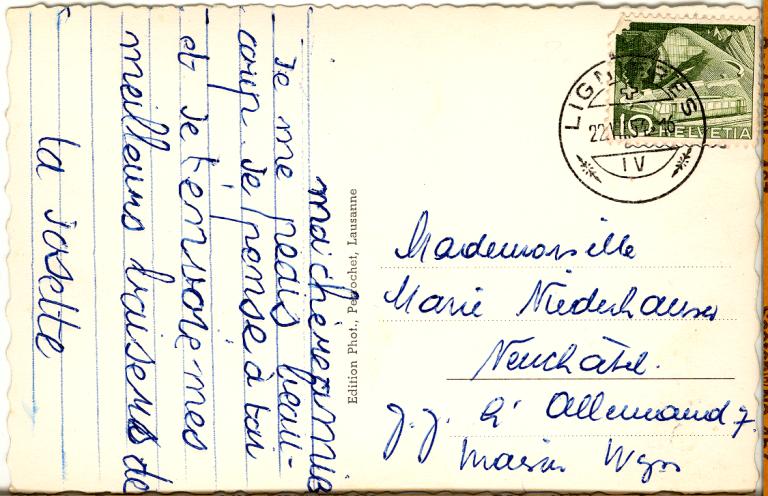 ma chère amie
Je me redis beau-
coup. Je pense à toi
et Je t'envoie mes
meilleurs baisers de
ta Josette
Edition Phot., Perrochet, Lausanne
LIGNIERES
IV
5
HELVETIA
Mademoiselle
Marie Niederhauser
Neuchâtel.
J. J. L' Allemand 7.
Maison Wyss